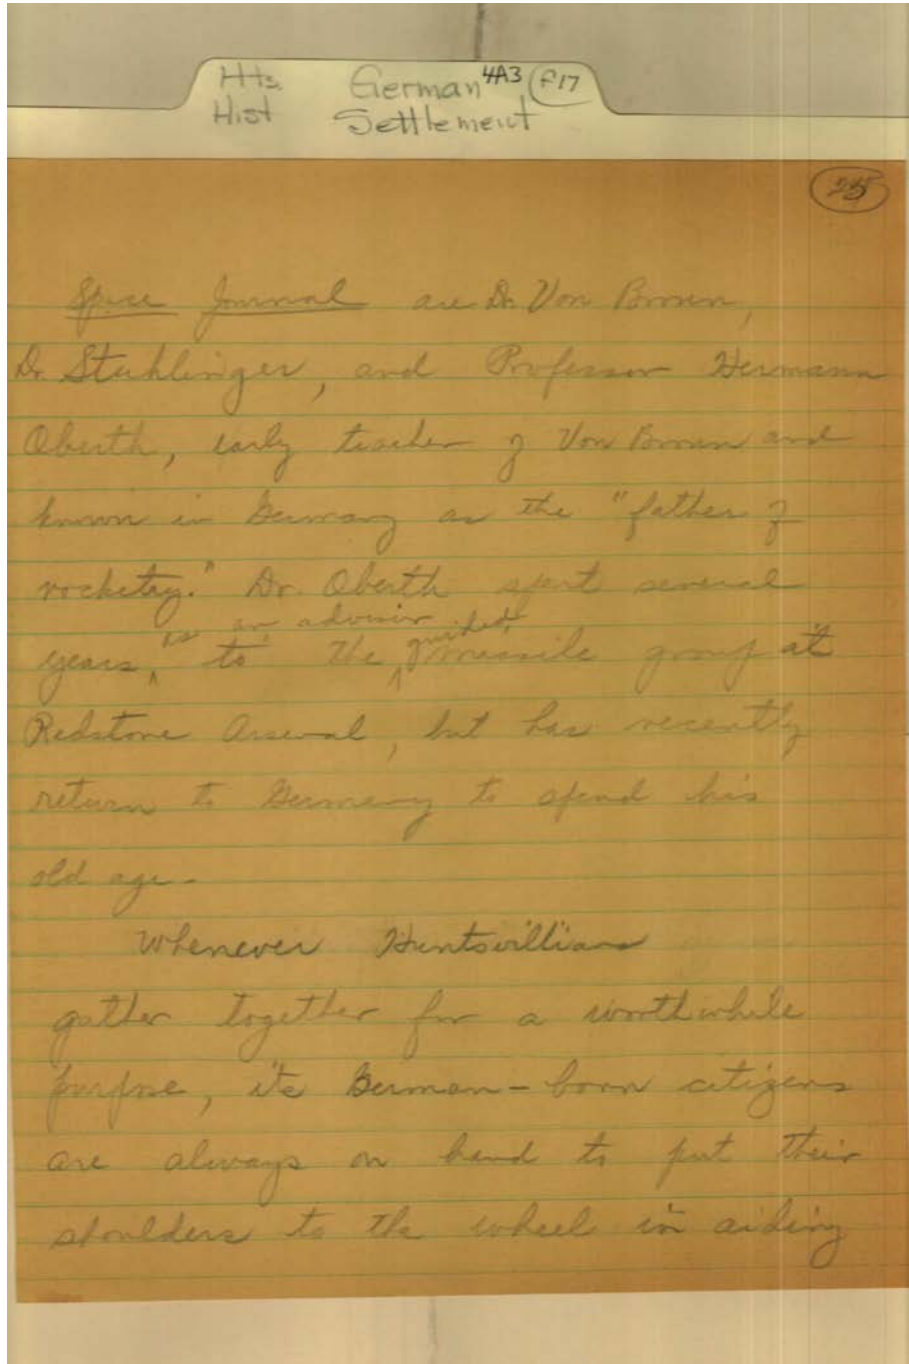 Hts. German 4A3 F17
Hist Settlement
25
Space Journal are Dr. Von Braun,
Dr. Stuhlinger, and Professor Hermann
Oberth, early teacher of Von Braun and
known in Germany as the "father of
rocketry." Dr. Oberth spent several
as an advisor guided
years, to the missile group at
Redstone Arsenal, but has recently
return to Germany to spend his
old age.
Whenever Huntsvillians
gather together for a worthwhile
purpose, its German-born citizens
are always on hand to put their
shoulders to the wheel in aiding